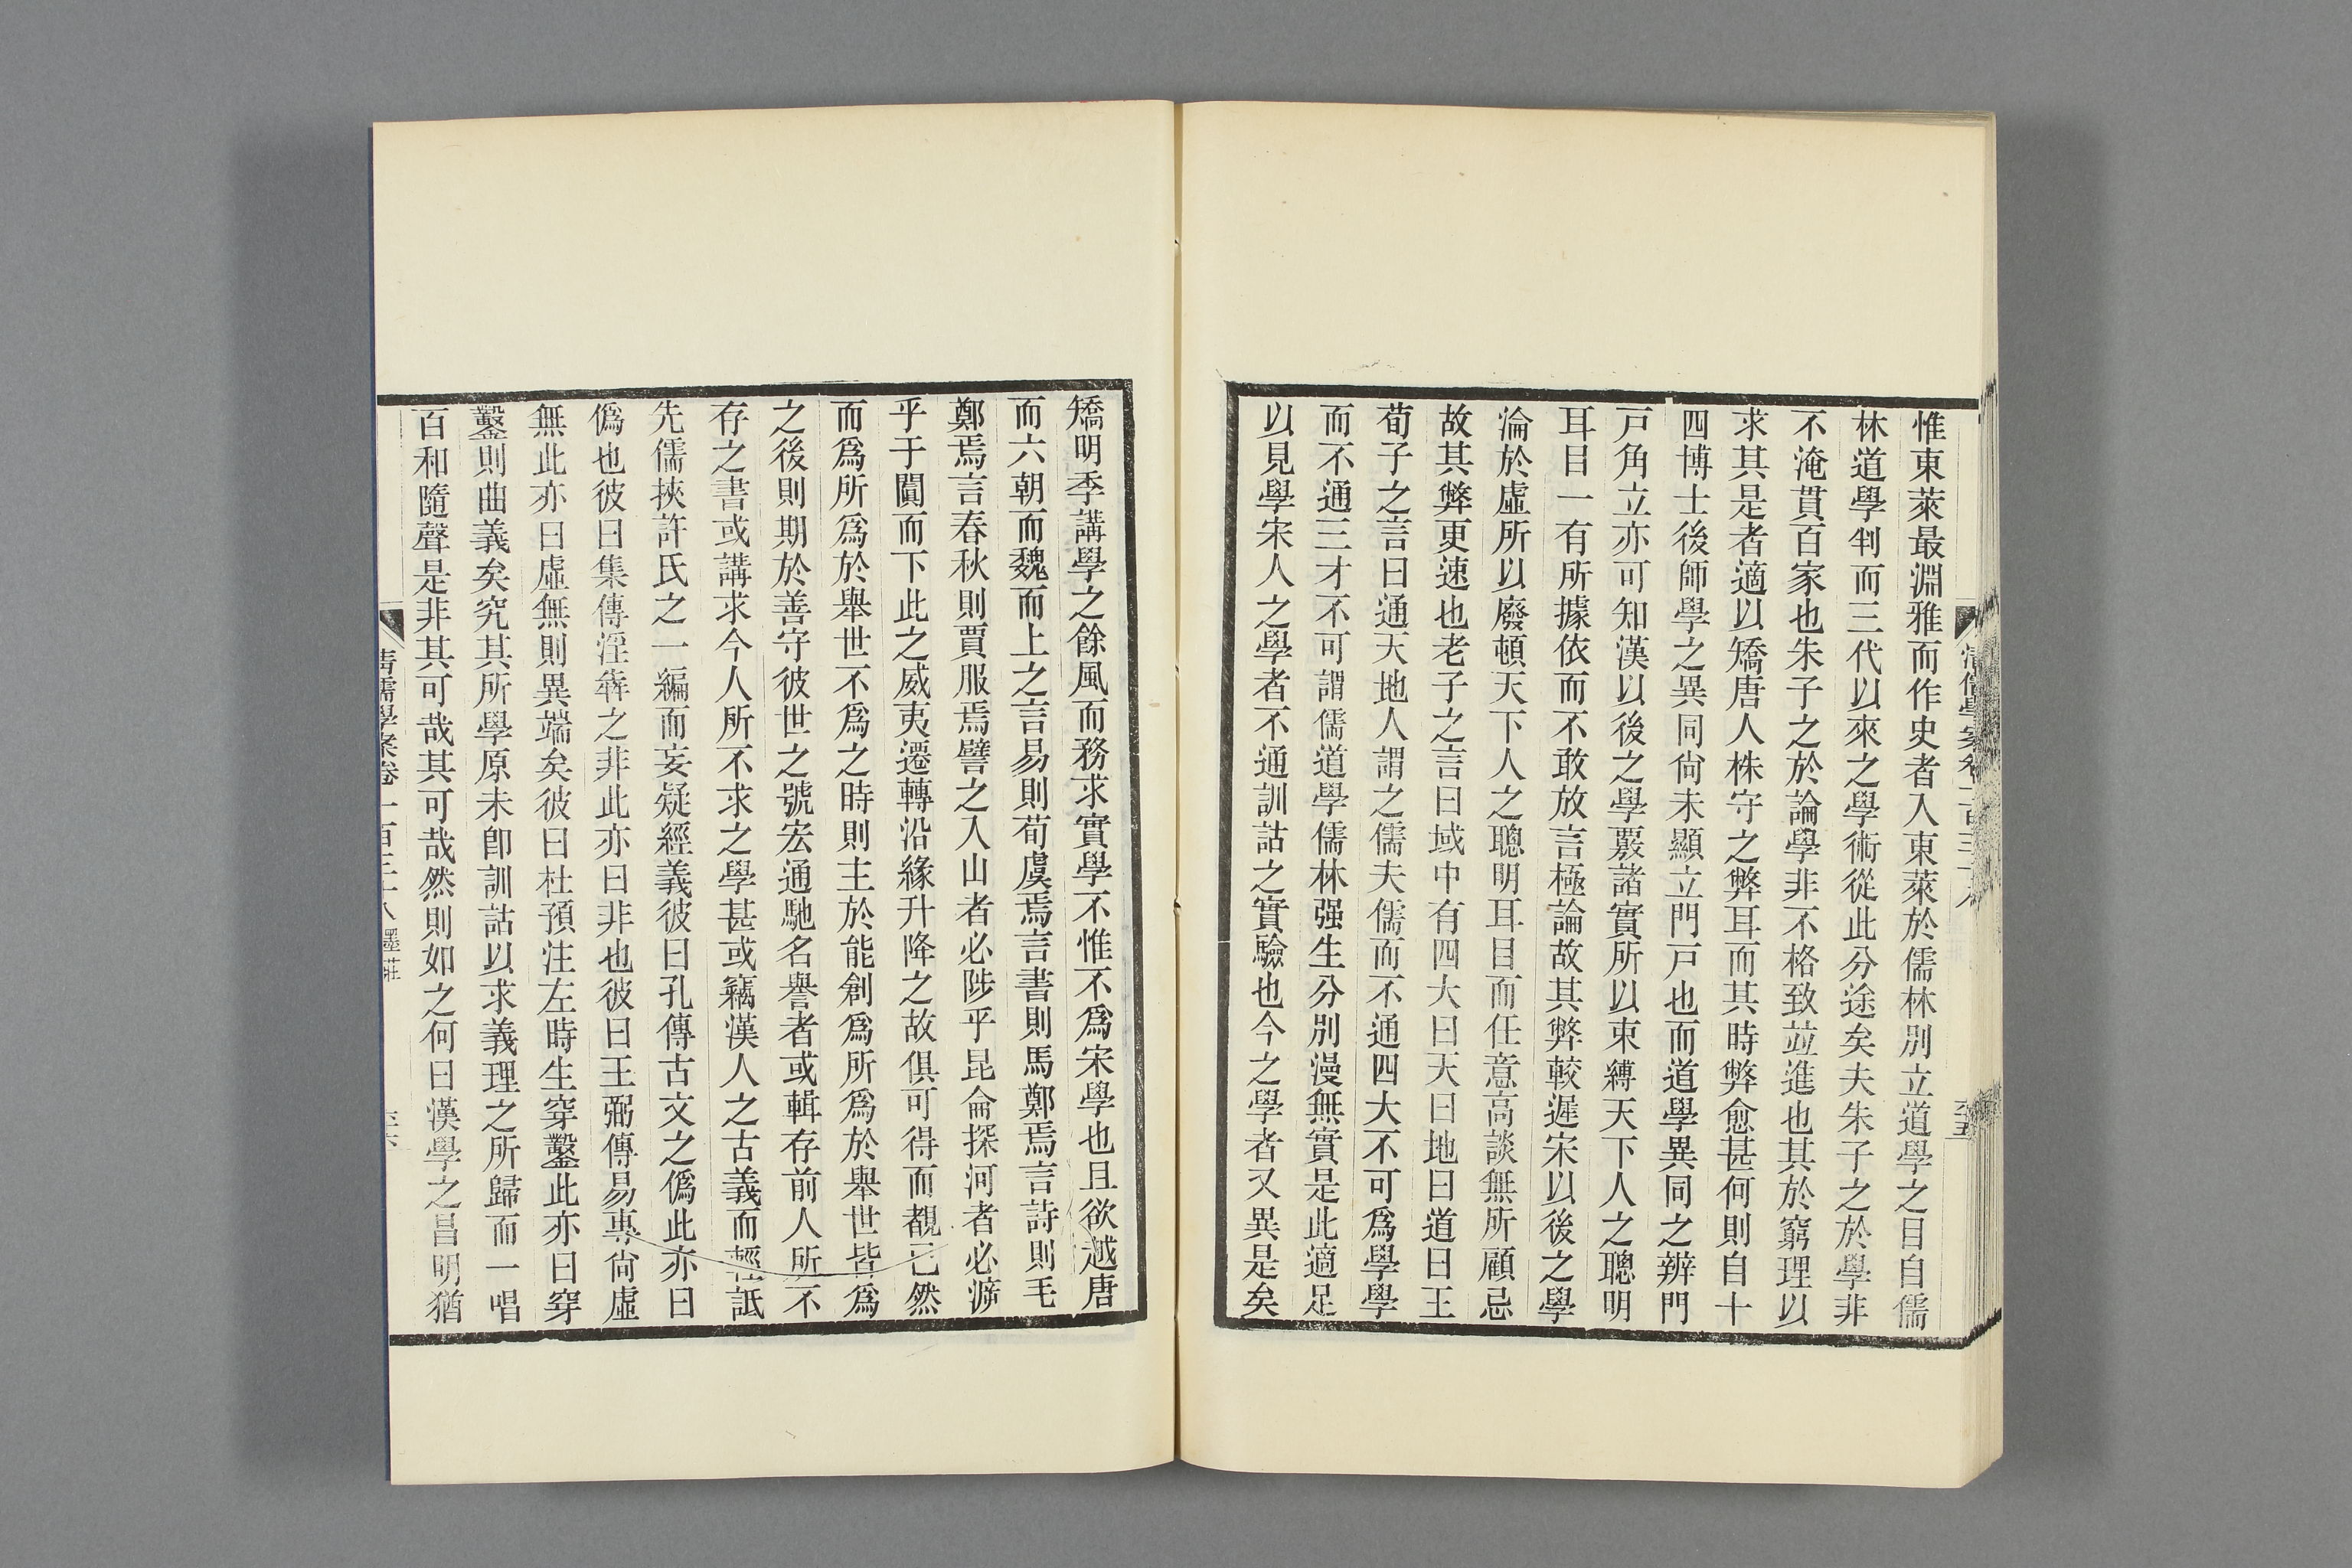 惟東萊最淵雅而作史者入東萊於儒林別立道學之目自儒
林道學判而三代以來之學術從此分途矣夫朱子之於學非
不淹貫百家也朱子之於論學非不格致並進也其於窮理以
求其是者適以矯唐人株守之弊耳而其時弊愈甚何則自十
四博士後師學之異同尙未顯立門戸也而道學異同之辨門
戸角立亦可知漢以後之學覈諸實所以束縛天下人之聰明
耳目一有所據依而不敢放言極論故其弊較遲宋以後之學
淪於虛所以廢頓天下人之聰明耳目而任意高談無所顧忌
故其弊更速也老子之言曰域中有四大曰天曰地曰道曰王
荀子之言曰通天地人謂之儒夫儒而不通四大不可爲學學
而不通三才不可謂儒道學儒林强生分別漫無實是此適足
以見學宋人之學者不通訓詁之實驗也今之學者又異是矣
矯明季講學之餘風而務求實學不惟不爲宋學也且欲越唐
而六朝而魏而上之言易則荀虞焉言書則馬鄭焉言詩則毛
鄭焉言春秋則賈服焉譬之入山者必陟乎昆侖探河者必㴑
乎于闐而下此之威夷遷轉沿緣升降之故俱可得而覩已然
而爲所爲於舉世不爲之時則主於能創爲所爲於舉世皆爲
之後則期於善守彼世之號宏通馳名譽者或輯存前人所不
存之書或講求今人所不求之學甚或竊漢人之古義而輕詆
先儒挾許氏之一編而妄疑經義彼曰孔傳古文之僞此亦曰
僞也彼曰集傳淫奔之非此亦曰非也彼曰王弼傳易專尙虛
無此亦曰虛無則異端矣彼曰杜預注左時生穿鑿此亦曰穿
鑿則曲義矣究其所學原未卽訓詁以求義理之所歸而一唱
百和隨聲是非其可哉其可哉然則如之何曰漢學之昌明猶
淸儒學案卷一百三十八 墨莊